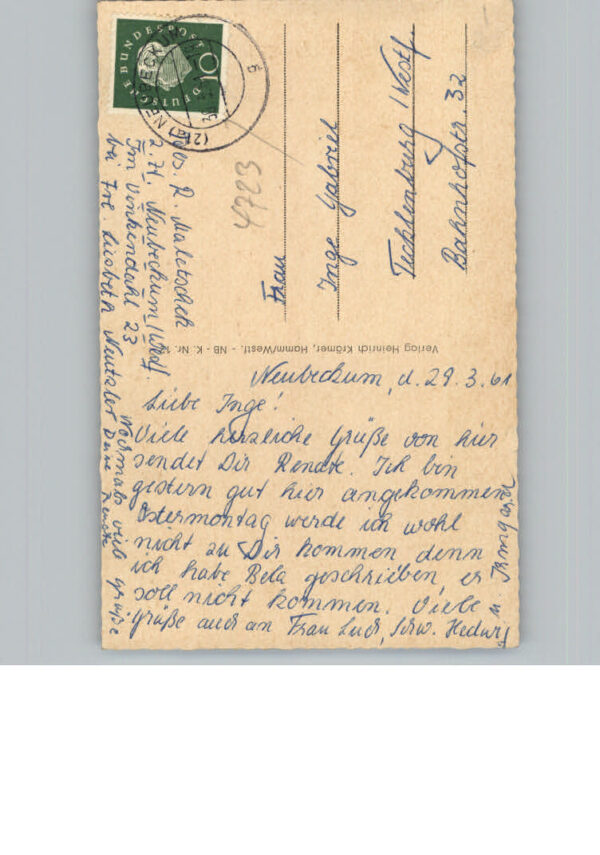 Neubeckum, d. 29. 3. 61
Liebe Inge!
Viele herzliche Grüße von hier
sendet Dir Renate. Ich bin
gestern gut hier angekommen
Ostermontag werde ich wohl
nicht zu Dir kommen denn
ich habe Bela geschrieben, er
soll nicht kommen. Viele
Grüße auch an Frau Schw. Hedwig
u. Irmgard
Nochmals viele Grüße
Deine Renate
Abs. R. Maletschek
z. Zt. Neubeckum/Westf.
Im Vinkendahl 23
bei Frl. Liesbeth
Frau
Inge Gabriel
Tecklenburg/Westf.
Bahnhofstr. 32
4723
DEUTSCHE BUNDESPOST
10
(21a) NEUBECKUM
b
Verlag Heinrich Krämer, Hamm/Westf. - NB - K. Nr.